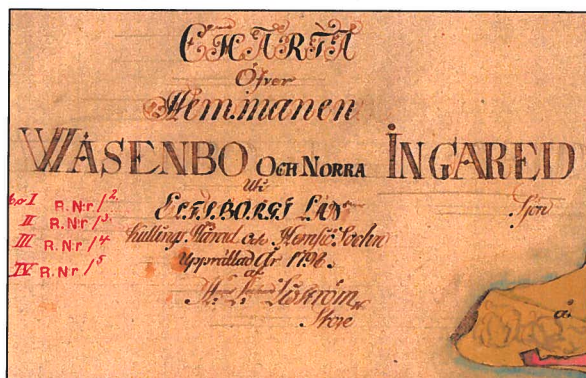 CHARTA
Öfver
Hemmanen
WÅSENBO OCH NORRA INGARED
Uti
ELFSBORGS LÄN
Kullings Härad och Hemsjö Sochn
Upprättad År 1796.
af
Siöström
Sjön
I R.Nr 1/2
II R.Nr 1/3
III R.Nr 1/4
IV R.Nr 1/5
a.